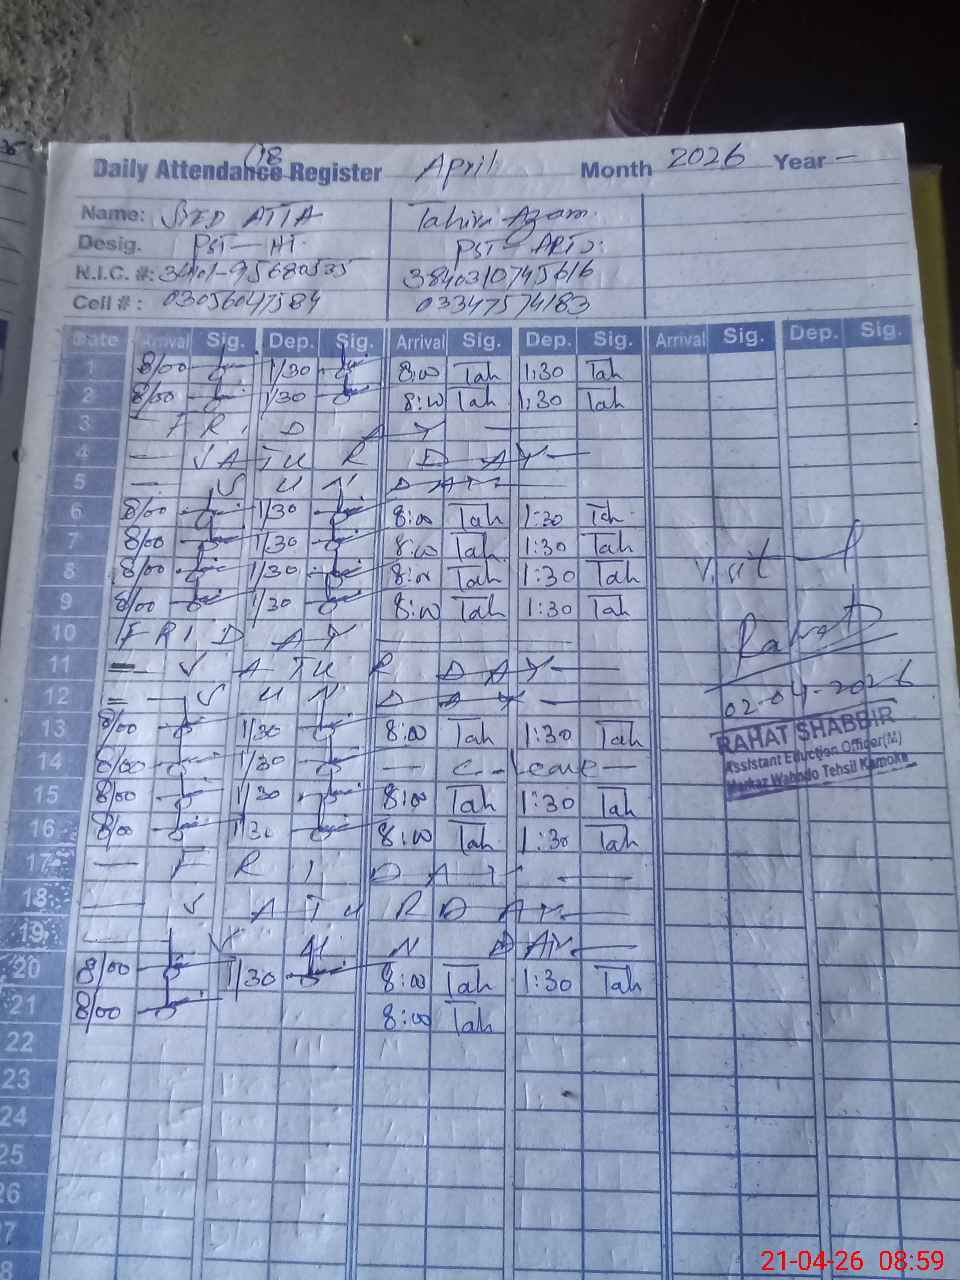 018
Daily Attendance Register April Month 2026 Year —
Name: SYED ATTA Tahira Azam.
Desig. PST - HT. PST - ARTS.
N.I.C. #: 3840310745616
Cell #: 03056047584 03347574183
Date Arrival Sig. Dep. Sig. Arrival Sig. Dep. Sig. Arrival Sig. Dep. Sig.
1 8/00 1/30 8:00 Tah 1:30 Tah
2 8/00 1/30 8:00 Tah 1:30 Tah
3 — FRIDAY —
4 — SATURDAY —
5 — SUNDAY —
6 8/00 1/30 8:00 Tah 1:30 Tah
7 8/00 1/30 8:00 Tah 1:30 Tah
8 8/00 1/30 8:00 Tah 1:30 Tah Visit
9 8/00 1/30 8:00 Tah 1:30 Tah
10 FRIDAY — Rahat
11 — SATURDAY —
12 = SUNDAY — 02-04-2026
13 8/00 1/30 8:00 Tah 1:30 Tah RAHAT SHABBIR
14 8/00 1/30 — C-leave — Assistant Eduction Officer(M)
15 8/00 1/30 8:00 Tah 1:30 Tah Markaz Wahndo Tehsil Kamoke
16 8/00 1/30 8:00 Tah 1:30 Tah
17 — FRIDAY —
18 — SATURDAY —
19 — SUNDAY —
20 8/00 1/30 8:00 Tah 1:30 Tah
21 8/00 8:00 Tah
22
23
24
25
26
27
21-04-26 08:59